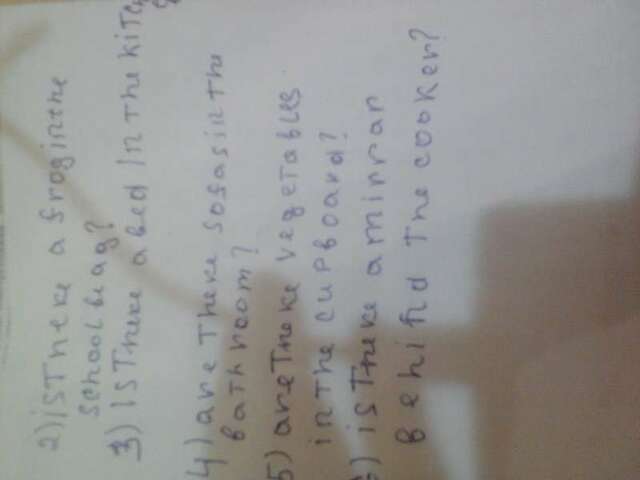 2) is There a frog in the
school bag?
3) is There a bed in the kitc
4) are There sofas in the
bathroom?
5) are There vegetables
in the cupboard?
is There a mirrar
behind The cooker?